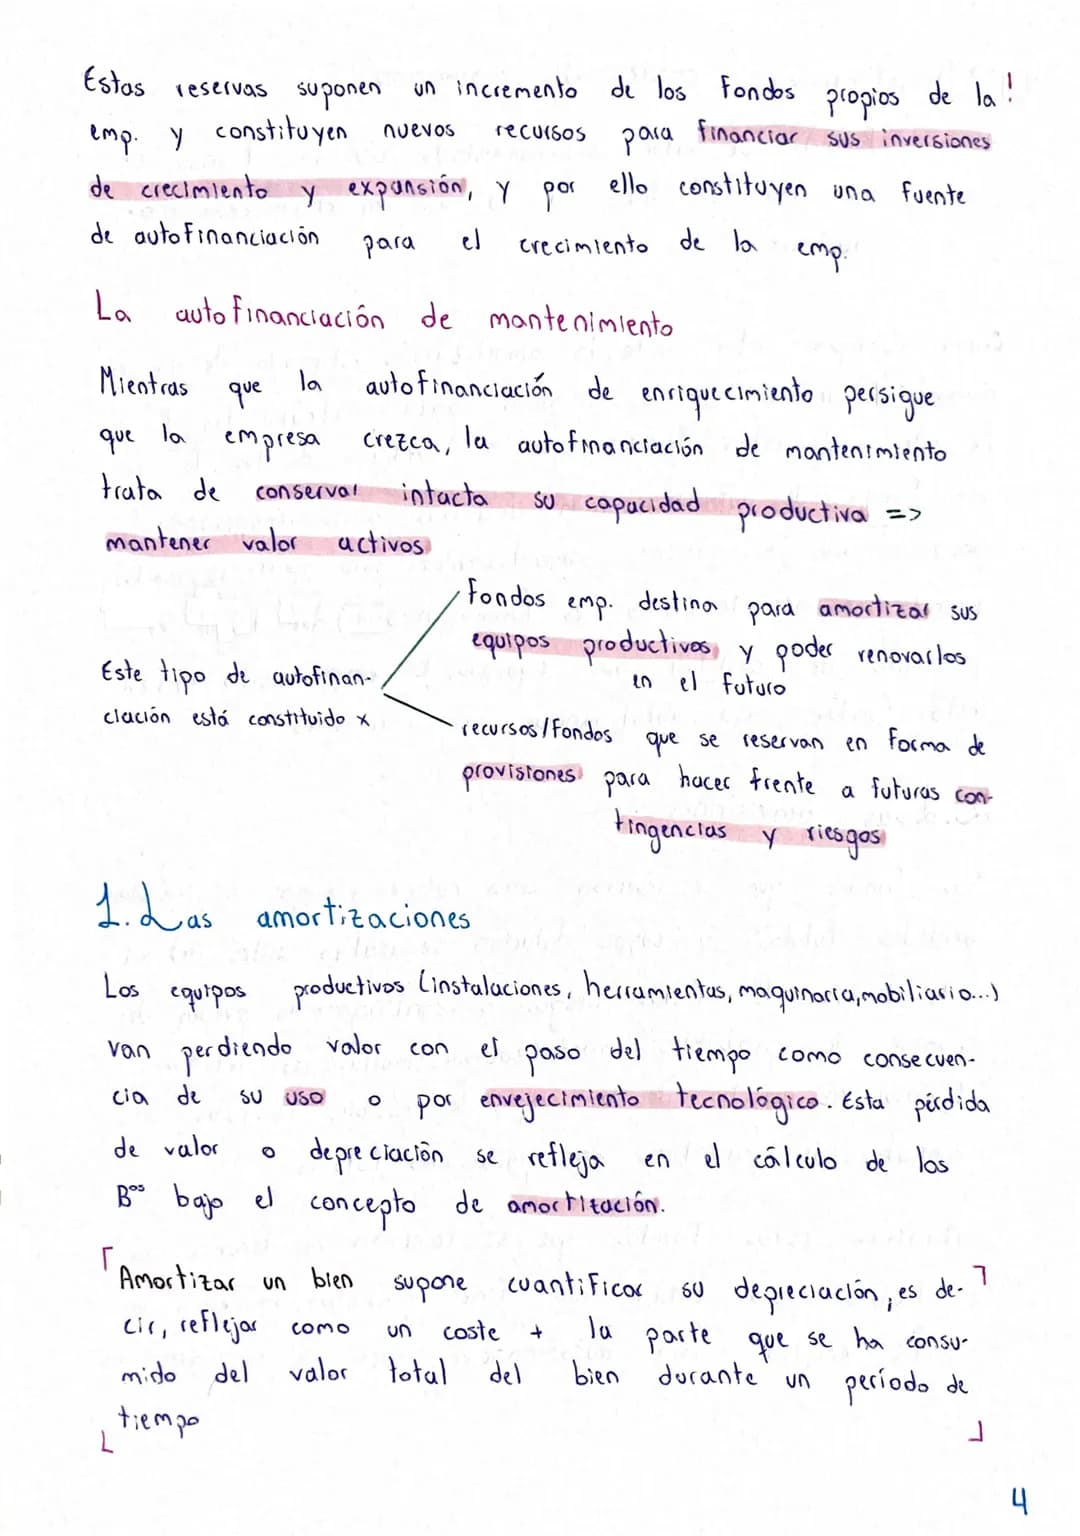 Estas reservas suponen un incremento de los fondos propios de la!
emp. y constituyen nuevos recursos para financiar sus inversiones
de crecimiento y expansión, y por ello constituyen una fuente
de autofinanciación para el crecimiento de la emp.
La autofinanciación de mantenimiento
Mientras que la autofinanciación de enriquecimiento persigue
que la empresa crezca, la autofinanciación de mantenimiento
trata de conservar intacta su capacidad productiva =>
mantener valor activos
Fondos emp. destina para amortizar sus
equipos productivos y poder renovarlos
en el futuro
Este tipo de autofinan-
ciación está constituido x
recursos/fondos que se reservan en forma de
provisiones para hacer frente a futuras con-
tingencias y riesgos
1. Las amortizaciones
Los equipos productivos (instalaciones, herramientas, maquinaria, mobiliario...)
van perdiendo valor con el paso del tiempo como consecuen-
cia de su uso o por envejecimiento tecnológico. Esta pérdida
de valor o depreciación se refleja en el cálculo de los
Bºˢ bajo el concepto de amortización.
Amortizar un bien supone cuantificar su depreciación, es de-
cir, reflejar como un coste + la parte que se ha consu-
mido del valor total del bien durante un período de
tiempo
4